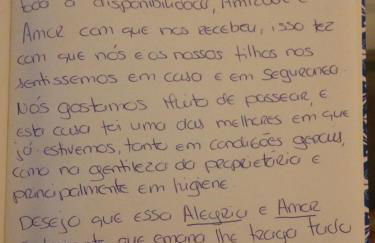 boa a disponibilidade, Amizade e
Amor com que nos recebeu, isso fez
com que nós e os nossos filhos nos
sentissemos em casa e em segurança.
Nós gostamos muito de passear, e
esta casa foi uma das melhores em que
já estivemos, tanto em condições gerais,
como na gentileza do proprietário e
principalmente em higiene.
Desejo que essa Alegria e Amor
que emana lhe traga tudo